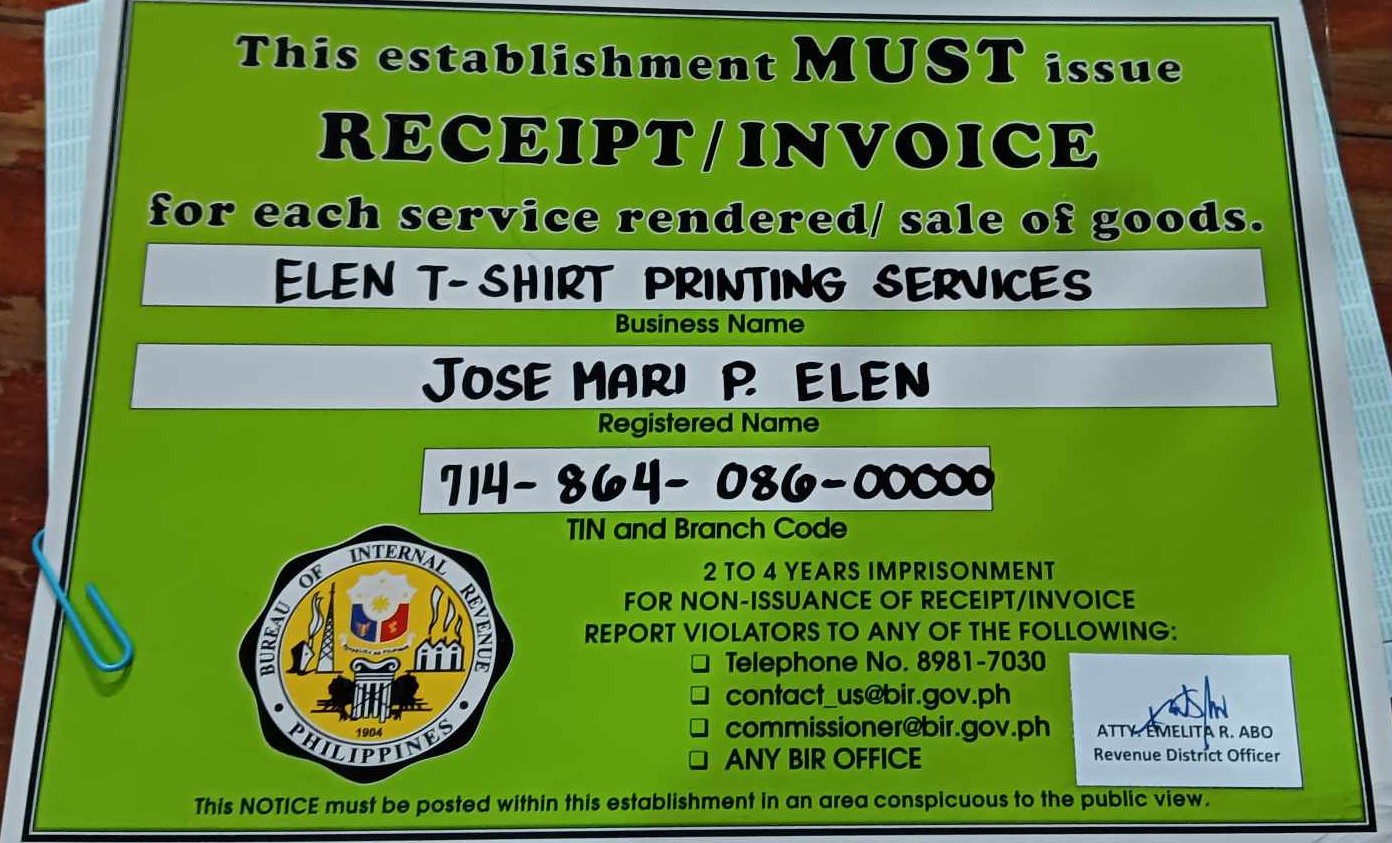 This establishment MUST issue
RECEIPT/INVOICE
for each service rendered/ sale of goods.
ELEN T-SHIRT PRINTING SERVICES
Business Name
JOSE MARI P. ELEN
Registered Name
714-864-086-00000
TIN and Branch Code
BUREAU OF INTERNAL REVENUE
1904
PHILIPPINES
2 TO 4 YEARS IMPRISONMENT
FOR NON-ISSUANCE OF RECEIPT/INVOICE
REPORT VIOLATORS TO ANY OF THE FOLLOWING:
❑ Telephone No. 8981-7030
❑ contact_us@bir.gov.ph
❑ commissioner@bir.gov.ph
❑ ANY BIR OFFICE
ATTY. EMELITA R. ABO
Revenue District Officer
This NOTICE must be posted within this establishment in an area conspicuous to the public view.